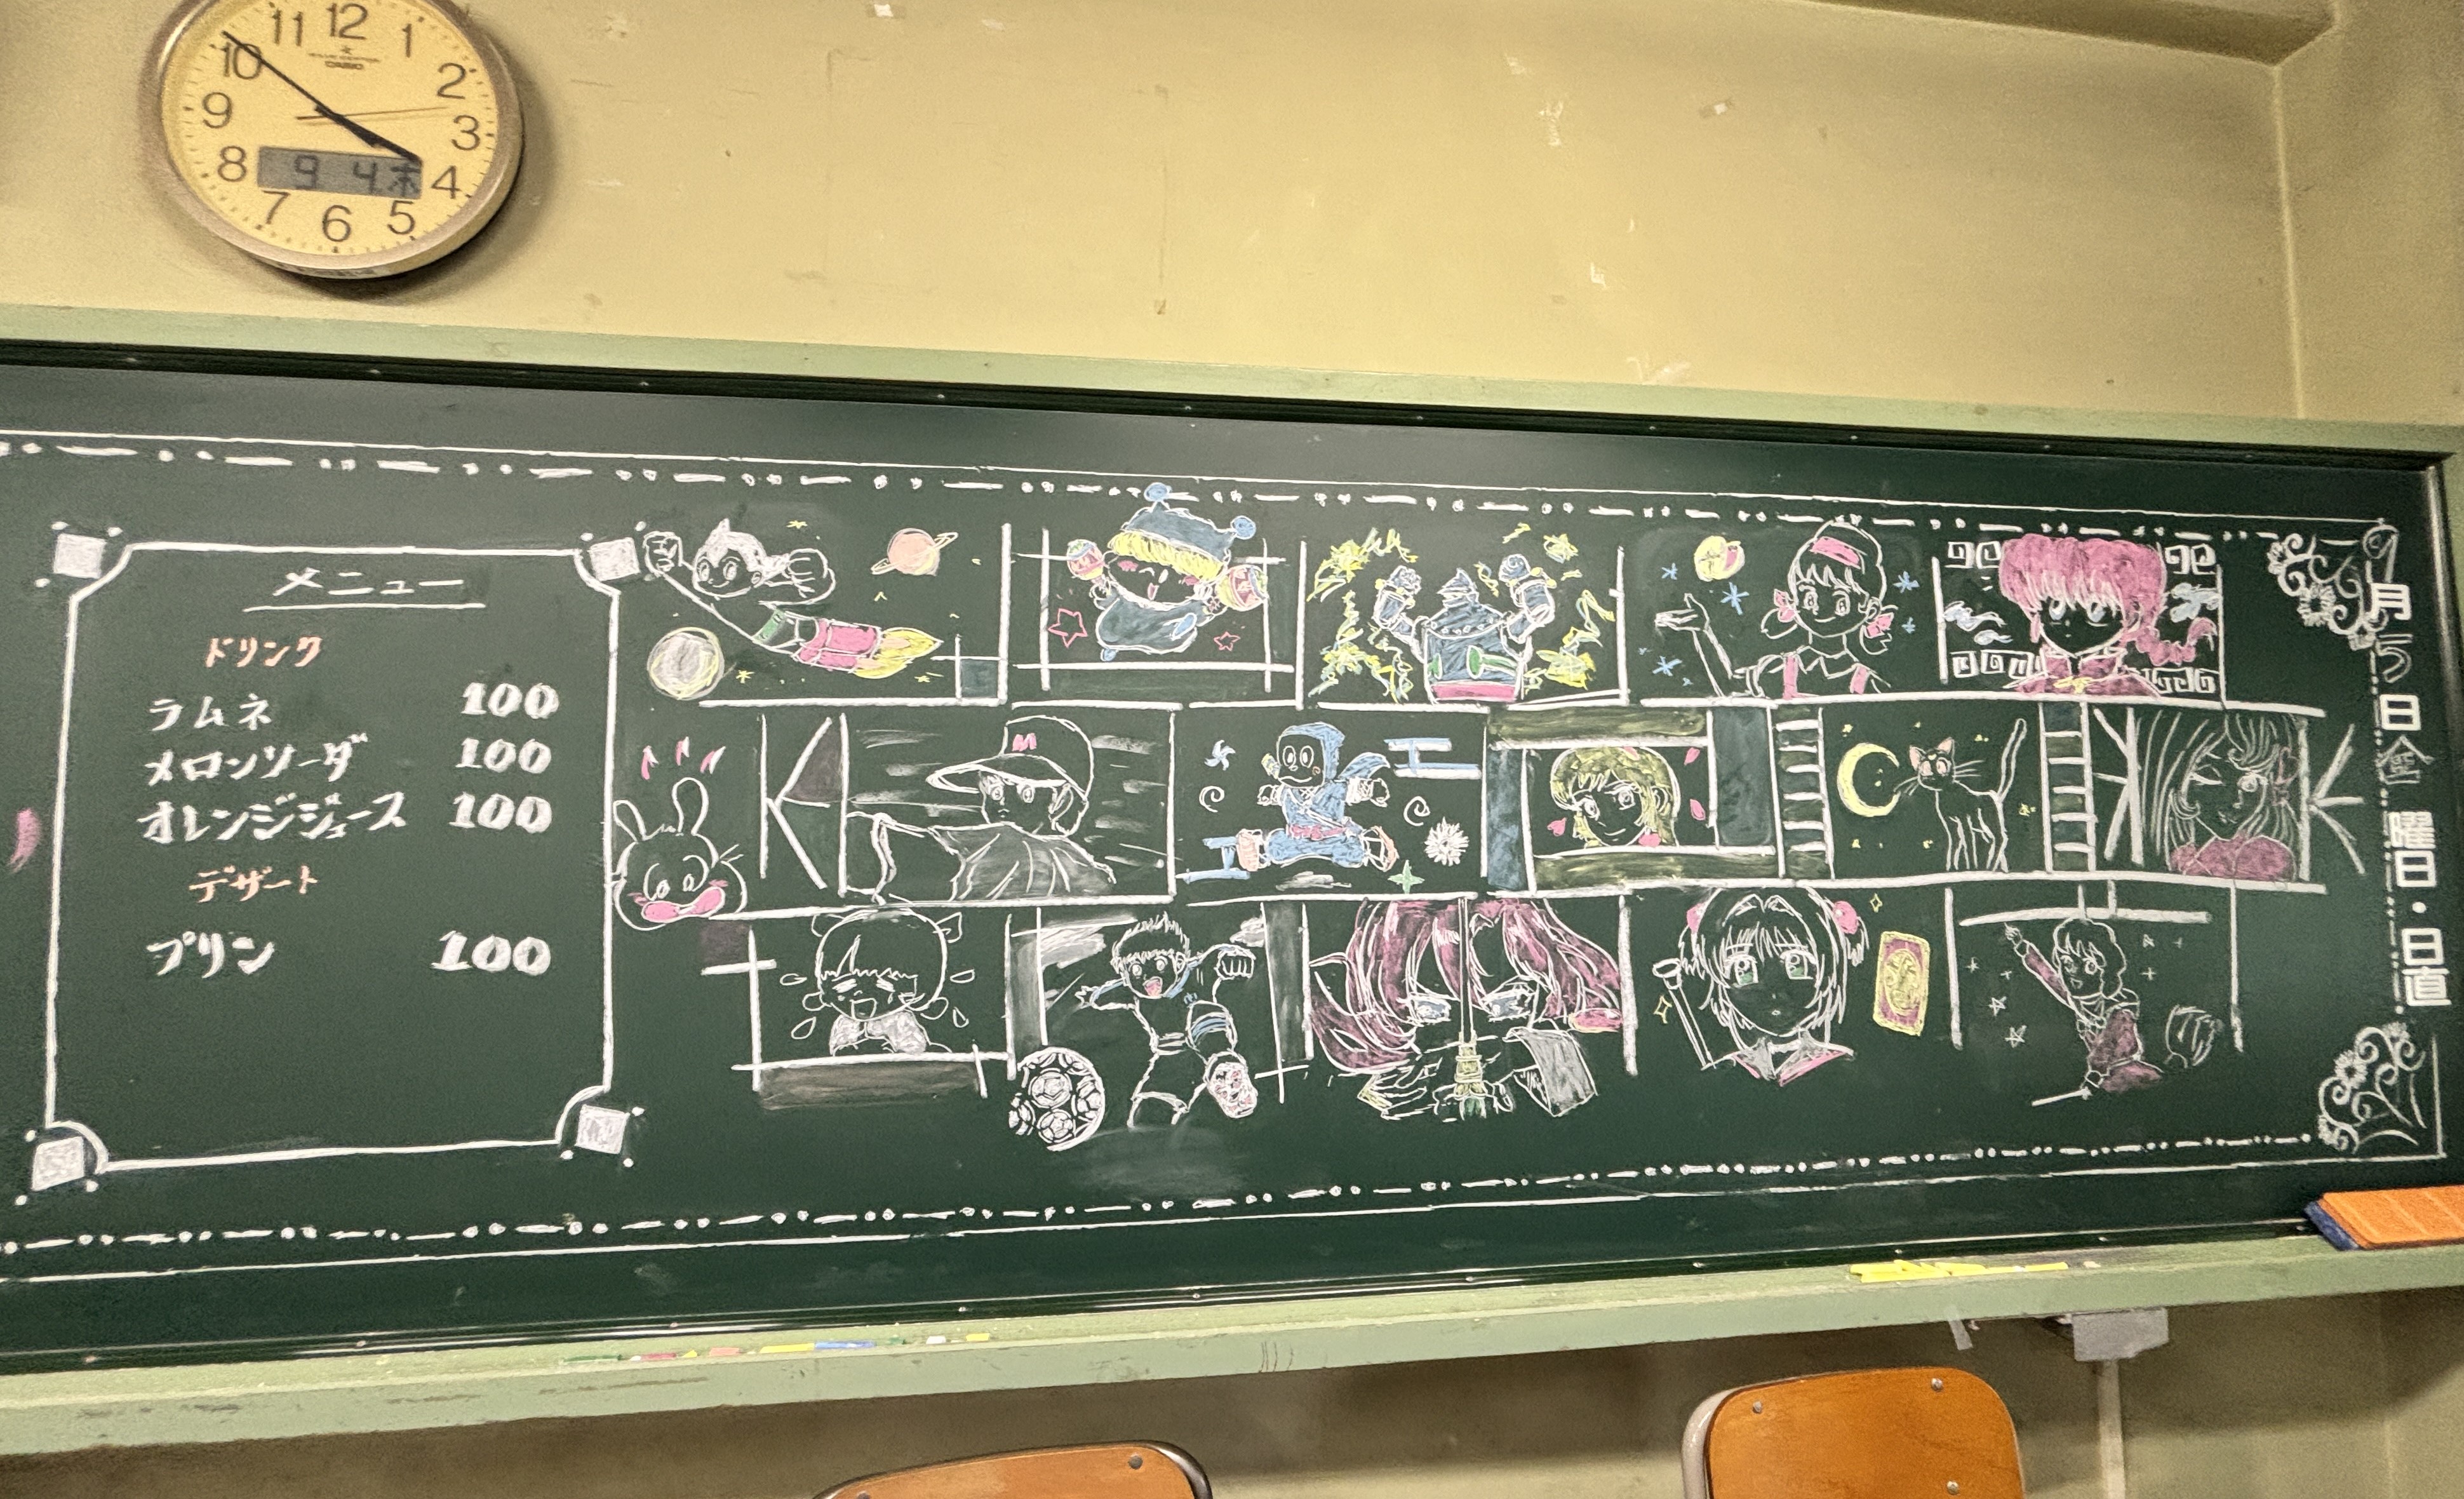 11 12 1
10 2
9 3
8 4
7 6 5
CASIO
9 4 木
メニュー
ドリンク
ラムネ 100
メロンソーダ 100
オレンジジュース 100
デザート
プリン 100
M
9月5日金曜日・日直